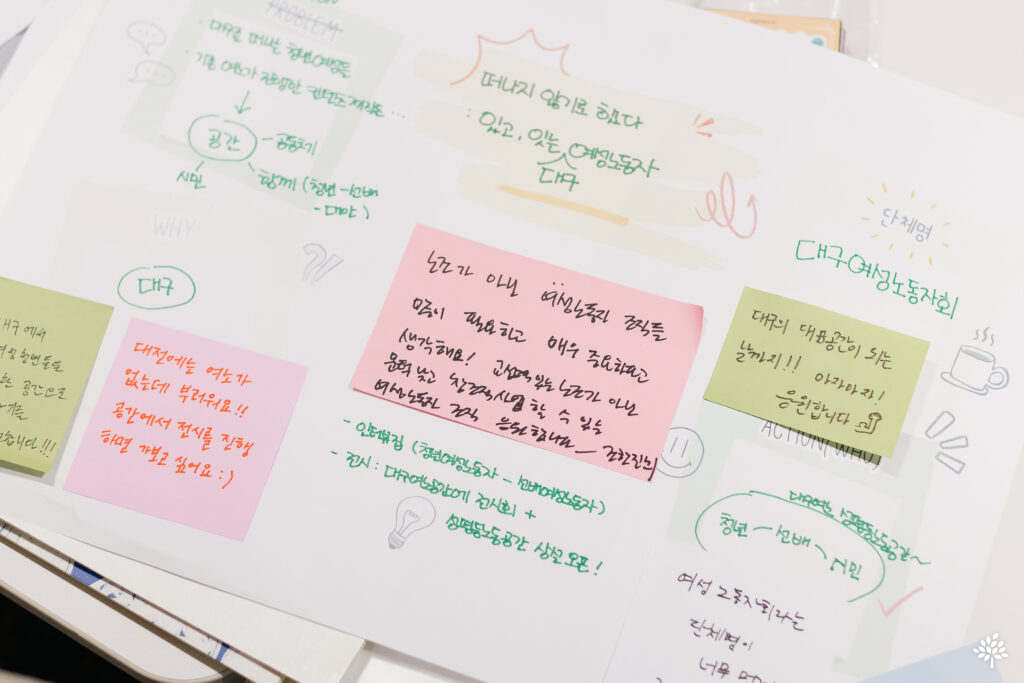 PROBLEM
· 대구로 떠나는 청년여성들
· 기존 여노가 진행한 컨텐츠 제작은 ...
공간
- 공동체
시민
함께 (청년 - 선배
- 대안)
떠나지 않기로 했다
: 있고, 잇는 여성노동자
대구
WHY
대구
단체명
대구여성노동자회
대구에서
공간으로
대전에는 여노가
없는데 부러워요!!
공간에서 전시를 진행
하면 가보고 싶어요 :)
노조가 아닌 여성노동자 조직들
무척이 필요하고 매우 중요하다고
생각해요! 고성벽있는 노조가 아닌
문턱 낮고 창조적사업 할 수 있는
여성노동자 조직 응원합니다
대구의 대표공간이 되는
날까지!! 아자아자!
응원합니다
- 인터뷰집 (청년여성노동자 - 선배여성노동자)
- 전시 : 대구여노공간에 전시회 +
성평등노동공간 상설 오픈!
ACTION(WHO)
대구여노 성평등노동공간~
청년 - 선배
시민
여성노동자회라는
단체명이
너무